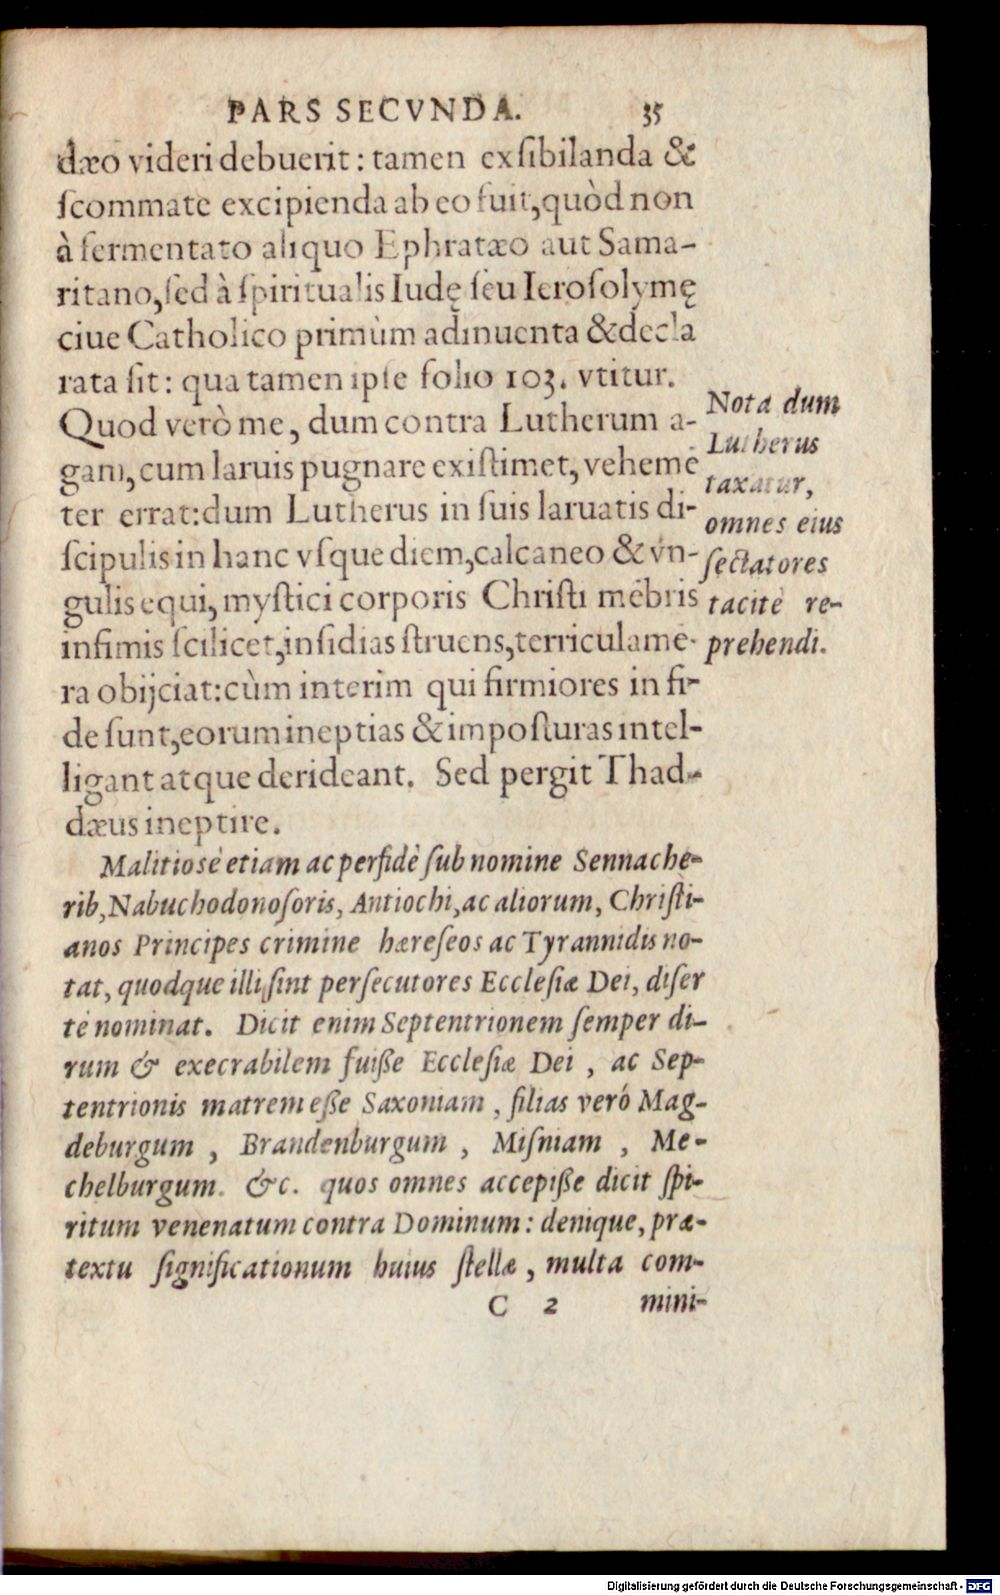 PARS SECVNDA. 35
dæo videri debuerit: tamen exſibilanda &
ſcommate excipienda ab eo fuit, quòd non
à fermentato aliquo Ephratæo aut Sama-
ritano, ſed à ſpiritualis Iudę ſeu Ieroſolymę
ciue Catholico primùm adinuenta & decla
rata ſit: qua tamen ipſe folio 103. vtitur.
Quod verò me, dum contra Lutherum a-
gam, cum laruis pugnare exiſtimet, vehemē
ter errat: dum Lutherus in ſuis laruatis di-
ſcipulis in hanc vſque diem, calcaneo & vn-
gulis equi, myſtici corporis Chriſti mēbris
infimis ſcilicet, inſidias ſtruens, terriculame-
ra obijciat: cùm interim qui firmiores in fi-
de ſunt, eorum ineptias & impoſturas intel-
ligant atque derideant. Sed pergit Thad-
dæus ineptire.
Nota dum
Lutherus
taxatur,
omnes eius
ſectatores
tacitè re-
prehendi.
Malitiosè etiam ac perfidè ſub nomine Sennache-
rib, Nabuchodonoſoris, Antiochi, ac aliorum, Chriſti-
anos Principes crimine hæreſeos ac Tyrannidis no-
tat, quodque illi ſint perſecutores Eccleſiæ Dei, diſer
tè nominat. Dicit enim Septentrionem ſemper di-
rum & execrabilem fuiſſe Eccleſiæ Dei, ac Sep-
tentrionis matrem eſſe Saxoniam, filias veró Mag-
deburgum, Brandenburgum, Miſniam, Me-
chelburgum. &c. quos omnes accepiſſe dicit ſpi-
ritum venenatum contra Dominum: denique, præ-
textu ſignificationum huius ſtellæ, multa com-
C 2 mini-
Digitalisierung gefördert durch die Deutsche Forschungsgemeinschaft - DFG